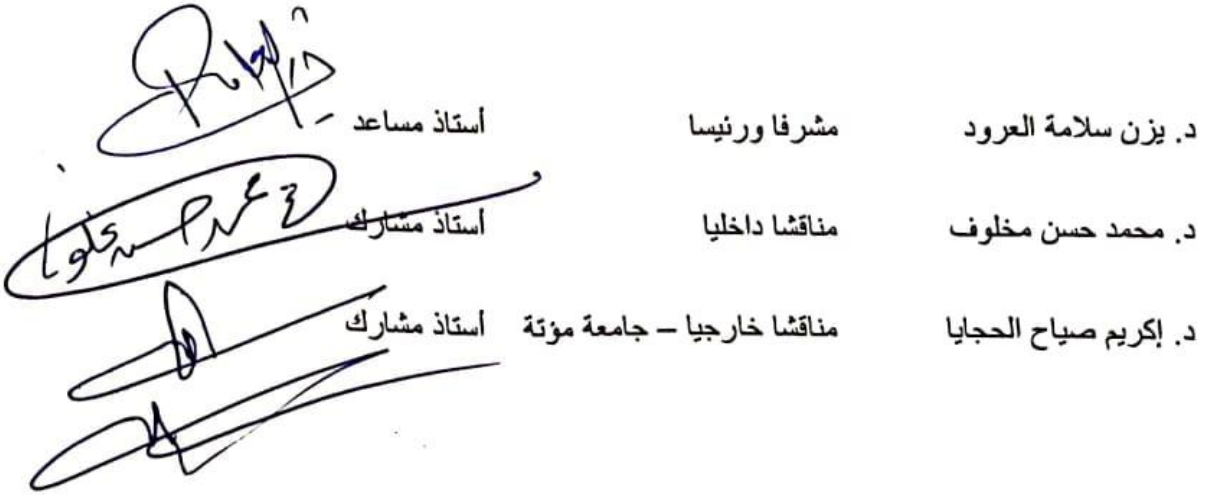 د. يزن سلامة العرود مشرفا ورئيسا أستاذ مساعد
د. محمد حسن مخلوف مناقشا داخليا أستاذ مشارك
د. إكريم صياح الحجايا مناقشا خارجيا – جامعة مؤتة أستاذ مشارك